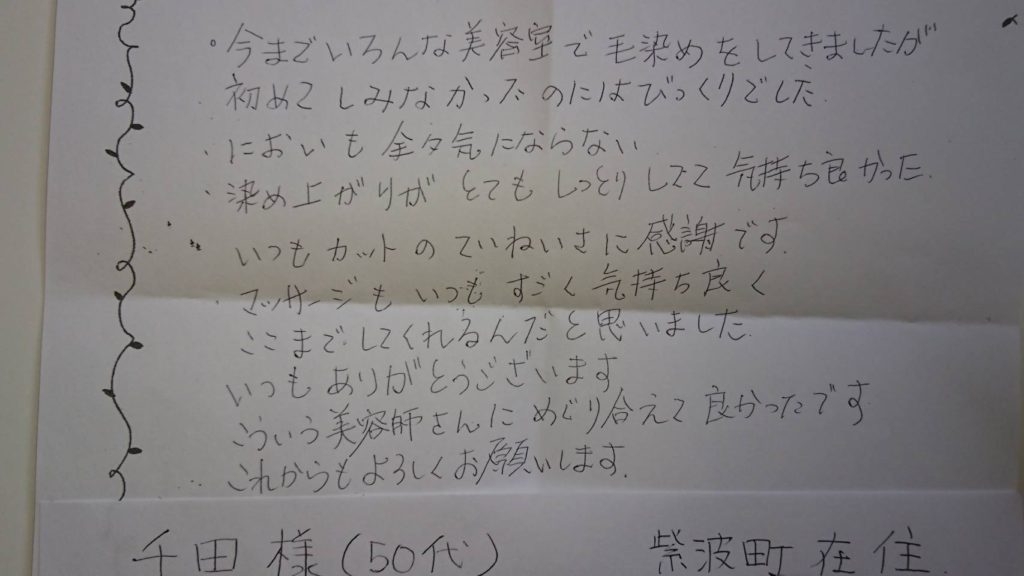 。今までいろんな美容室で毛染めをしてきましたが
初めてしみなかったのにはびっくりでした
・においも全々気にならない
・染め上がりがとてもしっとりしてて気持ち良かった.
いつもカットのていねいさに感謝です.
・マッサージもいつもすごく気持ち良く
ここまでしてくれるんだと思いました.
いつもありがとうございます
こういう美容師さんにめぐり合えて良かったです
これからもよろしくお願いします.
千田様(50代) 紫波町在住